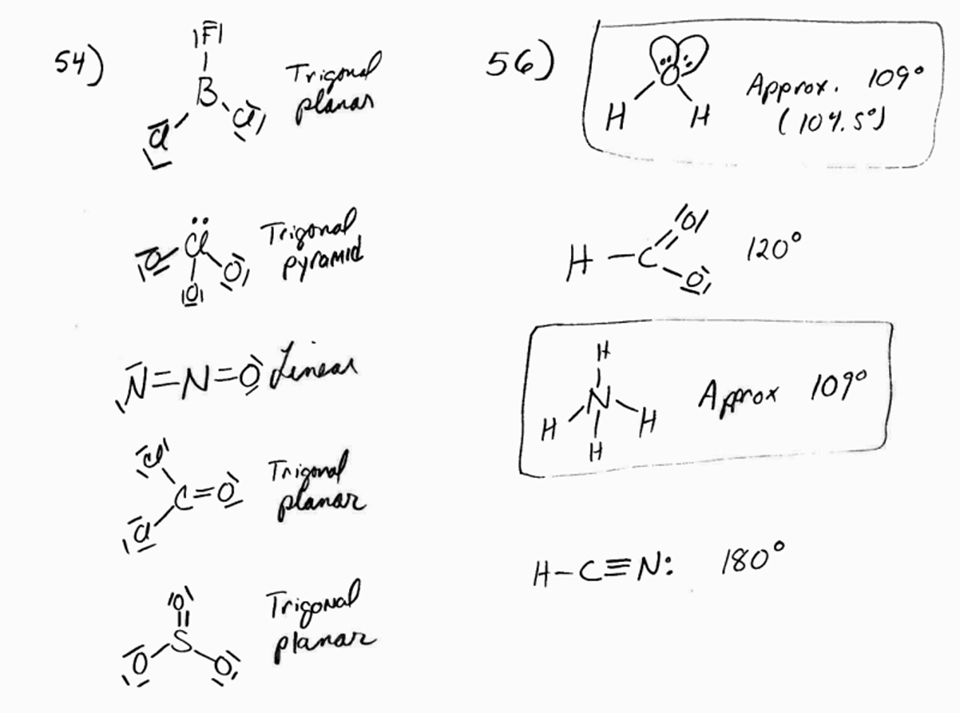 54)
|F̅|
B
Cl
Cl
Trigonal
planar
Cl
O
O
O
Trigonal
pyramid
N=N=O
Linear
Cl
C=O
Cl
Trigonal
planar
O
S
O
O
Trigonal
planar
56)
O
H
H
Approx. 109°
(104.5°)
O
H-C
O
120°
H
N
H
H
H
Approx 109°
H-C≡N: 180°